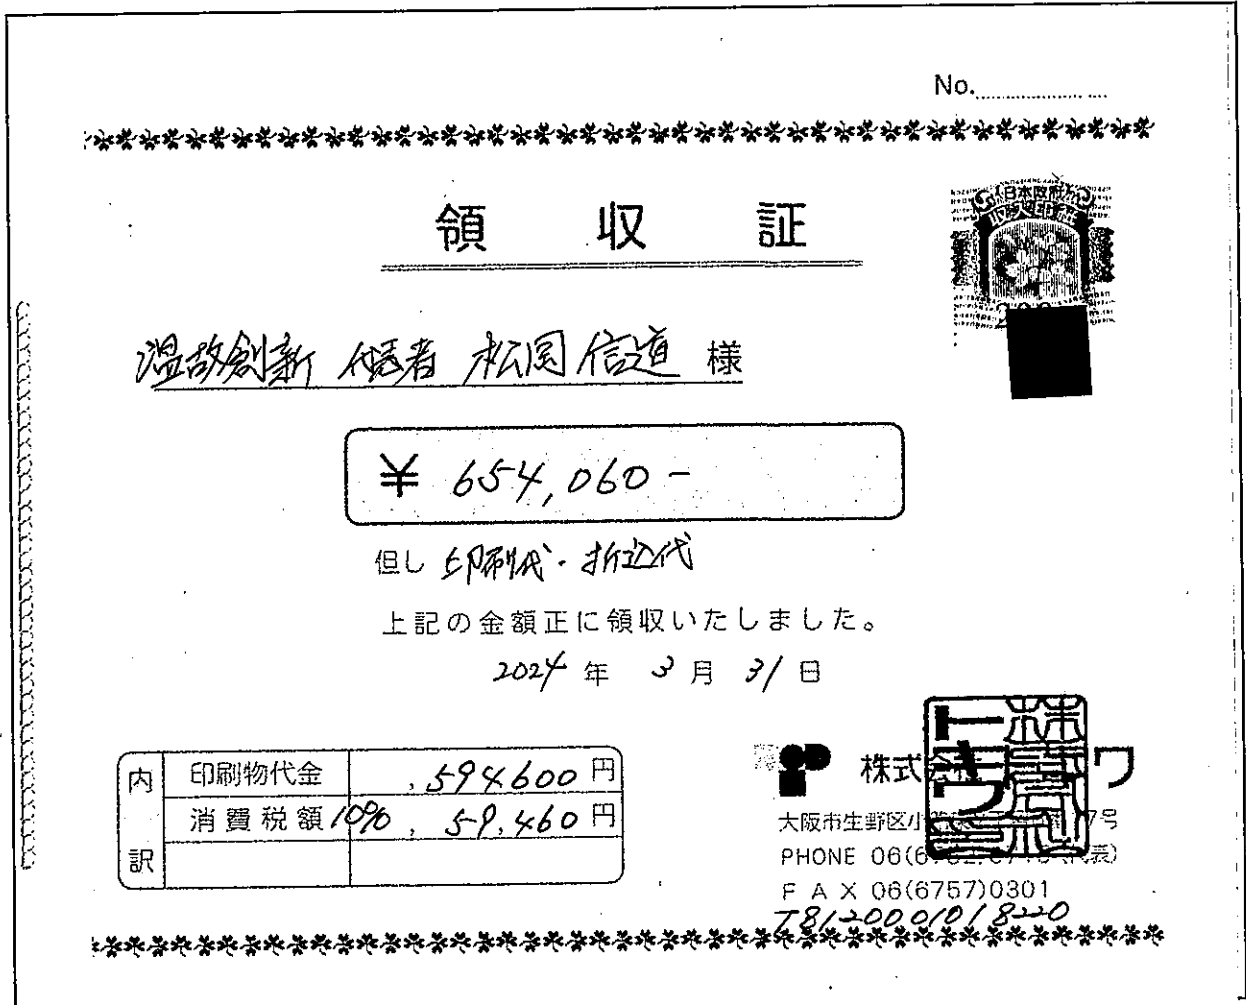 No.
日本政府
収入印紙
200
領収証
温故創新 代表者 松岡信道 様
¥ 654,060-
但し 印刷代・折込代
上記の金額正に領収いたしました。
2024年 3月 31日
内訳
印刷物代金 594600円
消費税額10% 59,460円
株式会社
ワ
大阪市生野区小
7号
PHONE 06(6
(代表)
FAX 06(6757)0301
T8120001018220